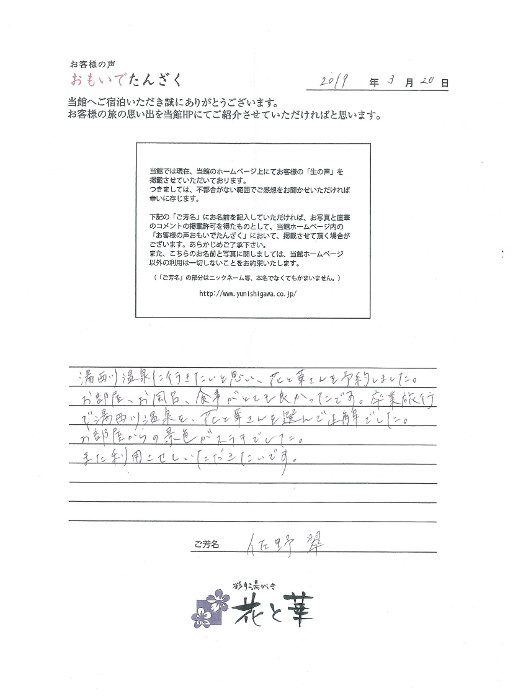 お客様の声
おもいでたんざく
2019 年 3 月 20 日
当館へご宿泊いただき誠にありがとうございます。
お客様の旅の思い出を当館HPにてご紹介させていただければと思います。
当館では現在、当館のホームページ上にてお客様の「生の声」を
掲載させていただいております。
つきましては、不都合がない範囲でご感想をお聞かせいただければ
幸いに存じます。
下記の「ご芳名」にお名前を記入していただければ、お写真と直筆
のコメントの掲載許可を得たものとして、当館ホームページ内の
「お客様の声おもいでたんざく」において、掲載させて頂く場合が
ございます。あらかじめご了承下さい。
また、こちらのお名前と写真に関しましては、当館ホームページ
以外の利用は一切しないことをお約束いたします。
（「ご芳名」の部分はニックネーム等、本名でなくてもかまいません。）
http://www.yunishigawa.co.jp/
湯西川温泉に行きたいと思い、花と華さんを予約しました。
お部屋、お風呂、食事がとても良かったです。卒業旅行
で湯西川温泉を、花と華さんを選んで正解でした。
お部屋からの景色がステキでした。
また利用させていただきたいです。
ご芳名 佐野 翠
彩り湯かしき
花と華